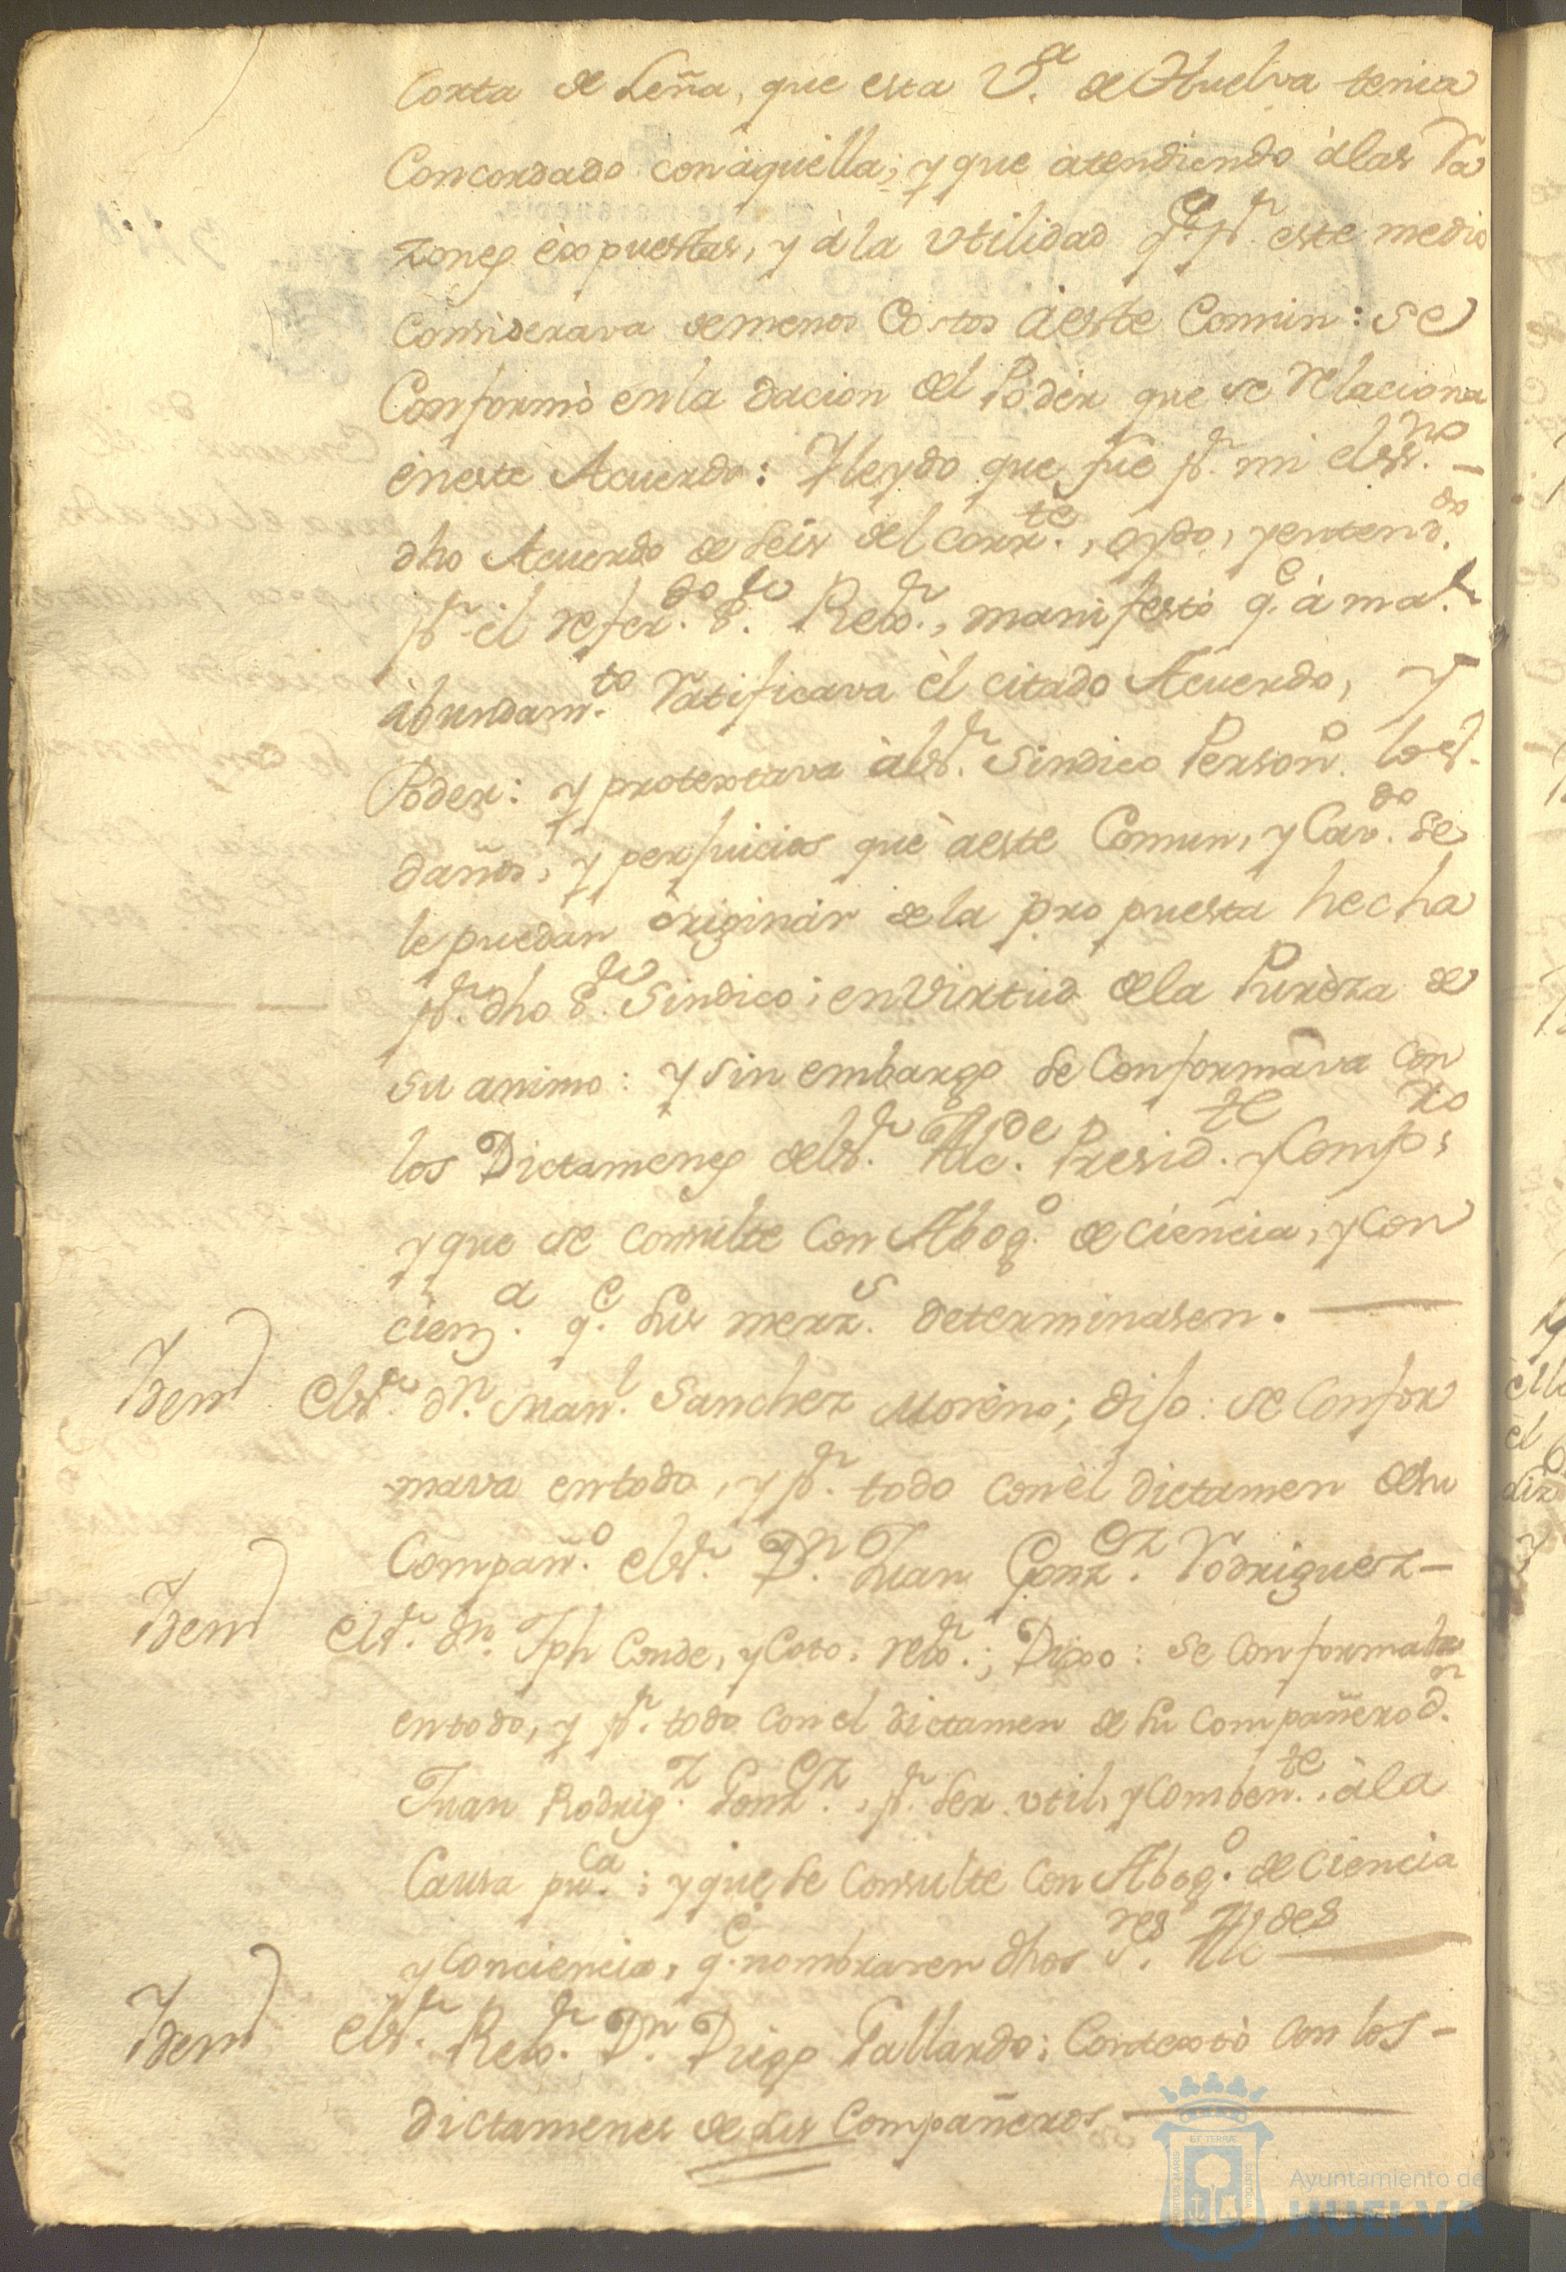 Corta de Leña, que esta V.ª de Huelva tenia
Concordado con àquella; y que àtendiendo àlas Ra
zones èxpuestas, y àla Vtilidad q.e p.r este medio
Considerava de menos Costos àeste Comun: se
Conformò en la dacion del Poder que se relaciona
èneste Acuerdo: Yleydo que fue p.r mi el ss.no
dho Acuerdo de seis del corr.te, oydo, yentend.do
p.r èl refer.do S.or Rex.r, manifestò q.e à ma.r
àbundam.to Ratificava èl citado Acuerdo, Y
Poder: y protextava àl S.r Sindico Person.o los
daños, y perjuicios què àeste Comun, y Cav.do se
le puedan òriginàr de la propuesta hecha
p.r dho S.or Sindico; en Virtud de la Purèza de
su animo: y sin embargo se Conformava con
los Dictamenes del S.r Alc.de Presid.te y Comp.ro;
y que se consulte con Abog.o de ciencia, y con
cienz.a q.e sus merz.s determinasen.
Idem El S.r d.n Man.l Sanchez Moreno; dijo: se Confor
mava en todo, y p.r todo con èl dictamen de su
Compañ.o el S.r D.n Juan Gonz.ez Rodriguez
Idem El S.r d.n Jph Conde, y Coto, rex.r; Dixo: se conformaba
en todo, y p.r todo con el dictamen de su Compañero d.n
Juan Rodrig.z Gonz.ez, p.r ser vtil, y Comben.te, àla
Causa pu.ca; y que se Consulte con Abog.o de Ciencia
y Conciencia, q.e nombraren dhos S.res Alc.des
Idem El S.r Rex.r D.n Diego Gallardo; Contextò con los
dictamenes de sus Compañeros
Ayuntamiento de
HUELVA